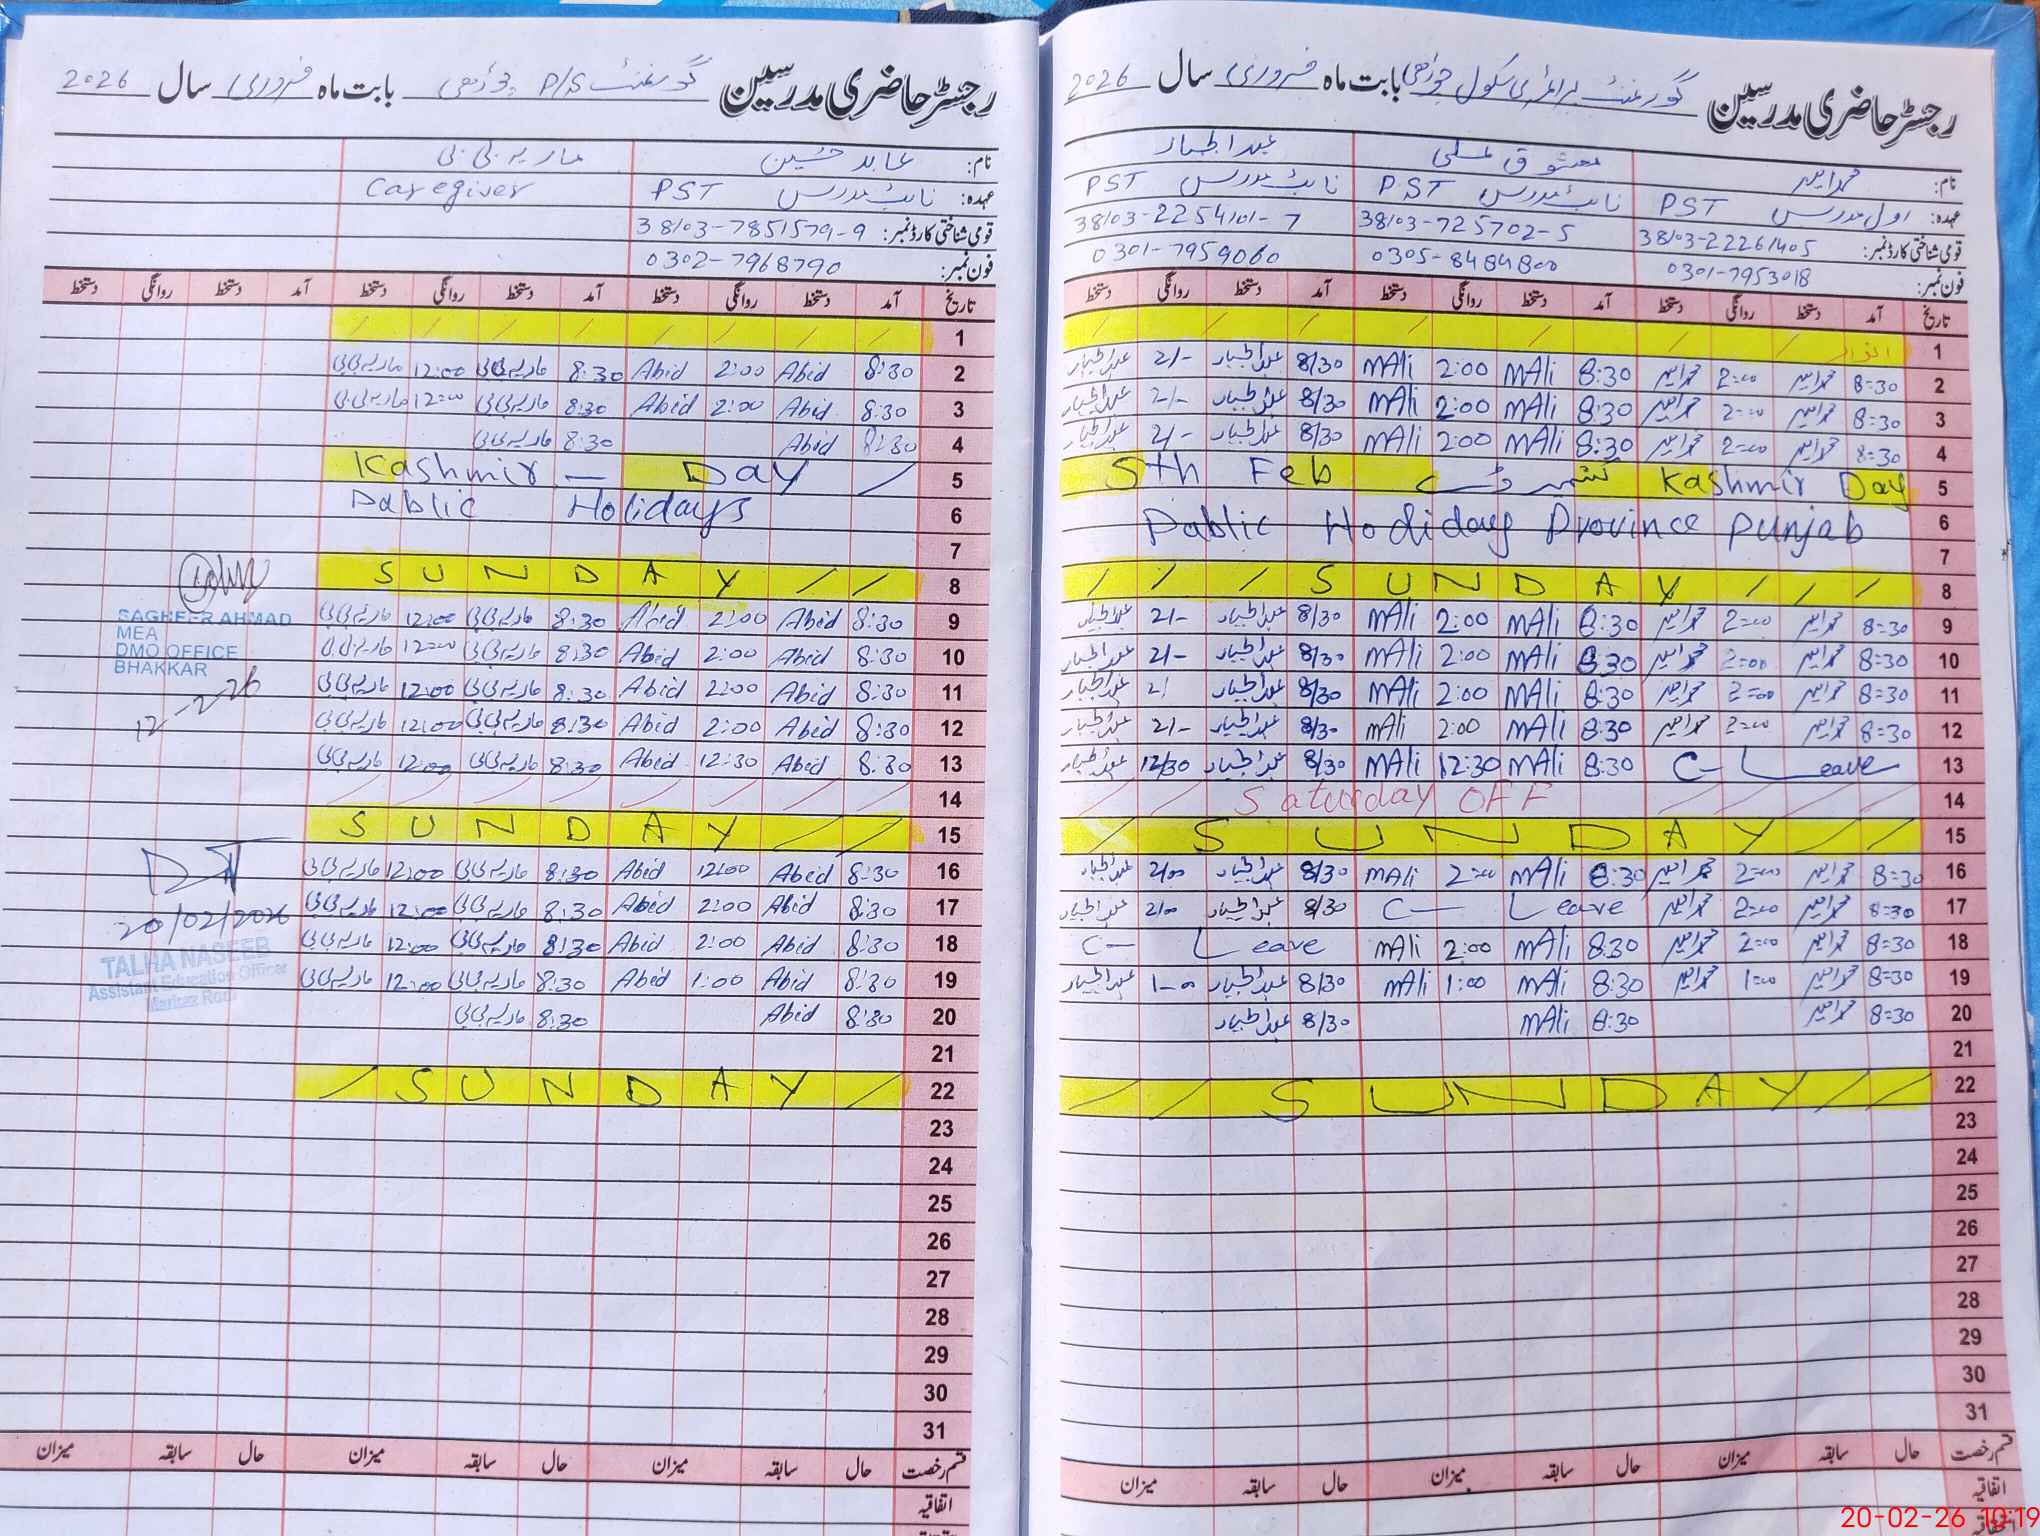 رجسٹر حاضری مدرسین گورنمنٹ پرائمری سکول بابت ماہ فروری سال 2026
نام: محمد امیر معشوق علی عبدالجبار
عہدہ: اول مدرس PST نائب مدرس PST نائب مدرس PST
قومی شناختی کارڈ نمبر: 38103-22261405 38103-725702-5 38103-2254101-7
فون نمبر: 0301-7953018 0305-8484800 0301-7959060
تاریخ آمد دستخط روانگی دستخط آمد دستخط روانگی دستخط آمد دستخط روانگی دستخط
1 اتوار
2 8=30 محمد امیر 2=00 محمد امیر 8:30 MAli 2:00 MAli 8/30 عبدالجبار 2/- عبدالجبار
3 8=30 محمد امیر 2=00 محمد امیر 8:30 MAli 2:00 MAli 8/30 عبدالجبار 2/- عبدالجبار
4 8=30 محمد امیر 2=00 محمد امیر 8:30 MAli 2:00 MAli 8/30 عبدالجبار 2/- عبدالجبار
5 5th Feb کشمیر ڈے Kashmir Day
6 Pablic Hodiday Province Punjab
7
8 / / / S U N D A Y / / /
9 8=30 محمد امیر 2=00 محمد امیر 8:30 MAli 2:00 MAli 8/30 عبدالجبار 2/- عبدالجبار
10 8=30 محمد امیر 2=00 محمد امیر 8:30 MAli 2:00 MAli 8/30 عبدالجبار 2/- عبدالجبار
11 8=30 محمد امیر 2=00 محمد امیر 8:30 MAli 2:00 MAli 8/30 عبدالجبار 2/ عبدالجبار
12 8=30 محمد امیر 2=00 محمد امیر 8:30 MAli 2:00 mAli 8/30 عبدالجبار 2/- عبدالجبار
13 C- Leave 8:30 MAli 12:30 MAli 8/30 عبدالجبار 12/30 عبدالجبار
14 Saturday OFF
15 / S U N D A Y / /
16 8=30 محمد امیر 2=00 محمد امیر 8:30 MAli 2:00 MAli 8/30 عبدالجبار 2/00 عبدالجبار
17 8=30 محمد امیر 2=00 محمد امیر C- Leave 8/30 عبدالجبار 2/00 عبدالجبار
18 8=30 محمد امیر 2=00 محمد امیر 8:30 mAli 2:00 mAli C- Leave
19 8=30 محمد امیر 1=00 محمد امیر 8:30 mAli 1:00 mAli 8/30 عبدالجبار 1-00 عبدالجبار
20 8=30 محمد امیر 8:30 mAli 8/30 عبدالجبار
21
22 / / S U N D A Y / /
23
24
25
26
27
28
29
30
31
قسم رخصت حال سابقہ میزان حال سابقہ میزان حال سابقہ میزان
اتفاقیہ
رجسٹر حاضری مدرسین گورنمنٹ P/S بابت ماہ فروری سال 2026
نام: عابد حسین ماریہ بی بی
عہدہ: نائب مدرس PST Caregiver
قومی شناختی کارڈ نمبر: 38103-7851579-9
فون نمبر: 0302-7968790
تاریخ آمد دستخط روانگی دستخط آمد دستخط روانگی دستخط آمد دستخط روانگی دستخط
1
2 8:30 Abid 2:00 Abid 8:30 ماریہ بی بی 12:00 ماریہ بی بی
3 8:30 Abid 2:00 Abid 8:30 ماریہ بی بی 12:00 ماریہ بی بی
4 8:30 Abid 8:30 ماریہ بی بی
5 Kashmir — Day /
6 Pablic Holidays
7
8 S U N D A Y / /
9 8:30 Abid 2:00 Abid 8:30 ماریہ بی بی 12:00 ماریہ بی بی
10 8:30 Abid 2:00 Abid 8:30 ماریہ بی بی 12:00 ماریہ بی بی
11 8:30 Abid 2:00 Abid 8:30 ماریہ بی بی 12:00 ماریہ بی بی
12 8:30 Abid 2:00 Abid 8:30 ماریہ بی بی 12:00 ماریہ بی بی
13 8:30 Abid 12:30 Abid 8:30 ماریہ بی بی 12:00 ماریہ بی بی
14
15 S U N D A Y / /
16 8:30 Abid 12:00 Abid 8:30 ماریہ بی بی 12:00 ماریہ بی بی
17 8:30 Abid 2:00 Abid 8:30 ماریہ بی بی 12:00 ماریہ بی بی
18 8:30 Abid 2:00 Abid 8:30 ماریہ بی بی 12:00 ماریہ بی بی
19 8:30 Abid 1:00 Abid 8:30 ماریہ بی بی 12:00 ماریہ بی بی
20 8:30 Abid 8:30 ماریہ بی بی
21
22 / S U N D A Y /
23
24
25
26
27
28
29
30
31
قسم رخصت حال سابقہ میزان حال سابقہ میزان حال سابقہ میزان
اتفاقیہ
SAGHEER AHMAD
MEA
DMO OFFICE
BHAKKAR
12-2-26
20/02/2026
TALHA NASEER
Assistant Education Officer
20-02-26 10:19